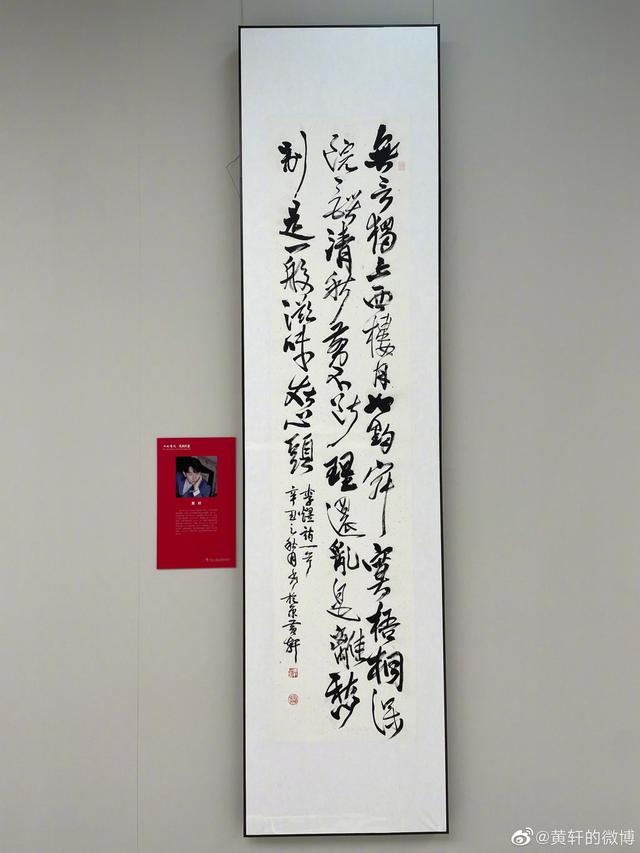 無言獨上西樓月如鈎寂寞梧桐深
院鎖清秋剪不斷理還亂是離愁
别是一般滋味在心頭
李煜詞一首
辛丑之秋月书於京黄軒
@黄轩的微博